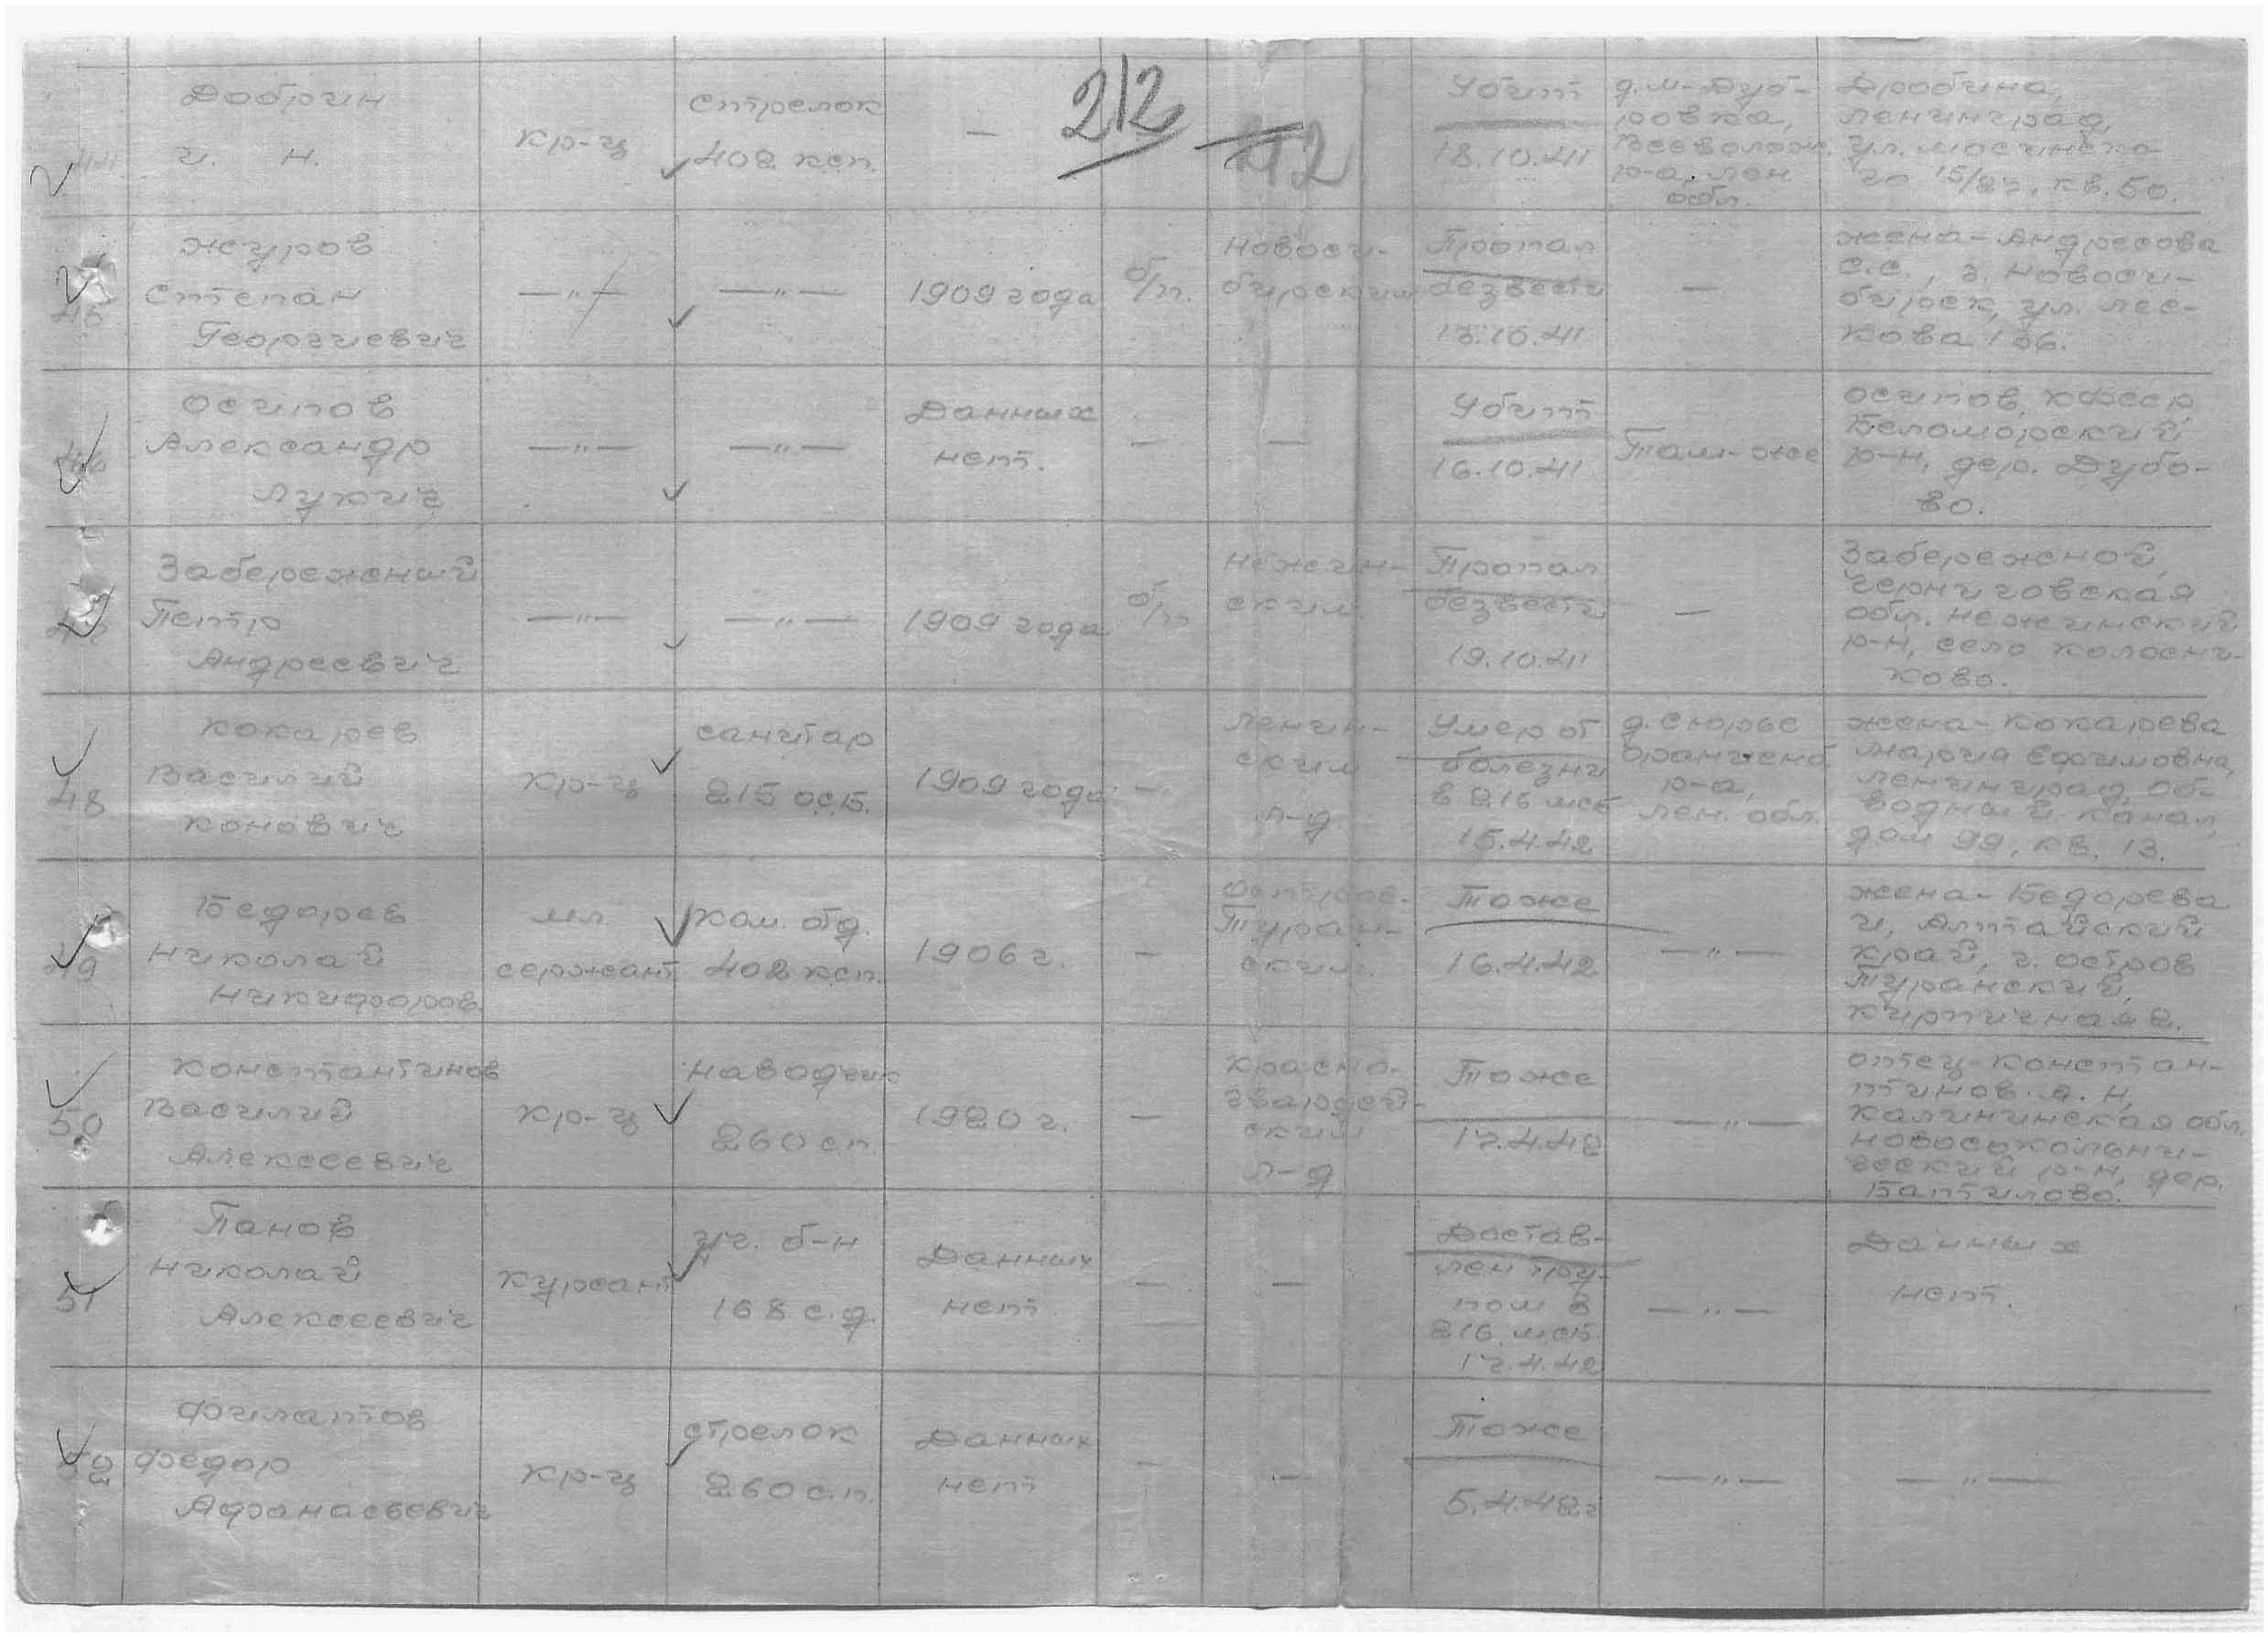 212
44
Добрин
И. Н.
кр-ц
стрелок
402 ксп.
—
Убит
18.10.41
д. М-Дуб-
ровка,
Всеволож.
р-а, Лен
обл.
Дробина,
Ленинград,
ул.
15/24, кв. 50.
45
Журов
Степан
Георгиевич
—"—
—"—
1909 года
б/п.
Новоси-
бирским
Пропал
безвести
—
жена - Андреева
С.С., г. Новоси-
бирск, ул. Лес-
кова
46
Осипов
Александр
Лукич
—"—
—"—
Данных
нет.
—
—
Убит
16.10.41
Там-же
Осипов, КФССР
Беломорский
р-н, дер. Дубо-
во.
47
Забережный
Петр
Андреевич
—"—
—"—
1909 года
б/п
Нежин-
ским
Пропал
безвести
19.10.41
—
Забережной,
Черниговская
обл. Нежинский
р-н, село Колосни-
ково.
48
Кокарев
Василий
Конович
кр-ц
санитар
215 осБ.
1909 года
—
Ленин-
ским
Л-д
Умер от
болезни
в 216 мсБ
15.4.42
д. Сюрье
Ораниенб.
р-а,
Лен. обл.
жена - Кокарева
Мария Ефимовна,
Ленинград, Об-
водный канал,
дом 99, кв. 13.
49
Бедарев
Николай
Никифоров.
мл.
сержант
ком. отд.
402 ксп.
1906 г.
—
Остров-
Туран-
ским.
Тоже
16.4.42
—"—
жена - Бедарева
И, Алтайский
край, г. остров
Туранский,
Кирпичная 2.
50
Константинов
Василий
Алексеевич
кр-ц
наводчик
260 сп.
1920 г.
—
Красно-
гвардей-
ским
Л-д
Тоже
17.4.42
—"—
отец - Констан-
тинов. А. Н,
Калининская обл.
Новосокольни-
ческий р-н, дер.
Батилово.
51
Панов
Николай
Алексеевич
курсант
уч. б-н
168 с.д.
Данных
нет.
—
—
Достав-
лен тру-
пом в
216 мсБ.
17.4.42
—"—
Данных
нет.
52
Филатов
Федор
Афанасьевич
кр-ц
стрелок
260 с.п.
Данных
нет
—
—
Тоже
5.4.42г
—"—
—"—